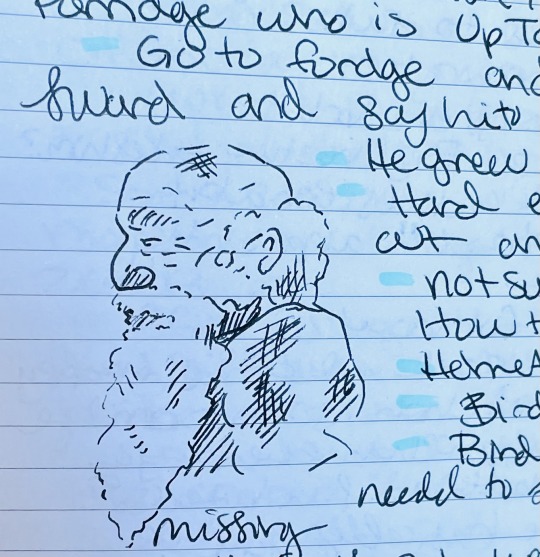 who is Up To
Go to fordge and
Sward and say hi to
He grew
Hard
cut an
not su
How t
Helmet
Bird
Bind
needd to
missing